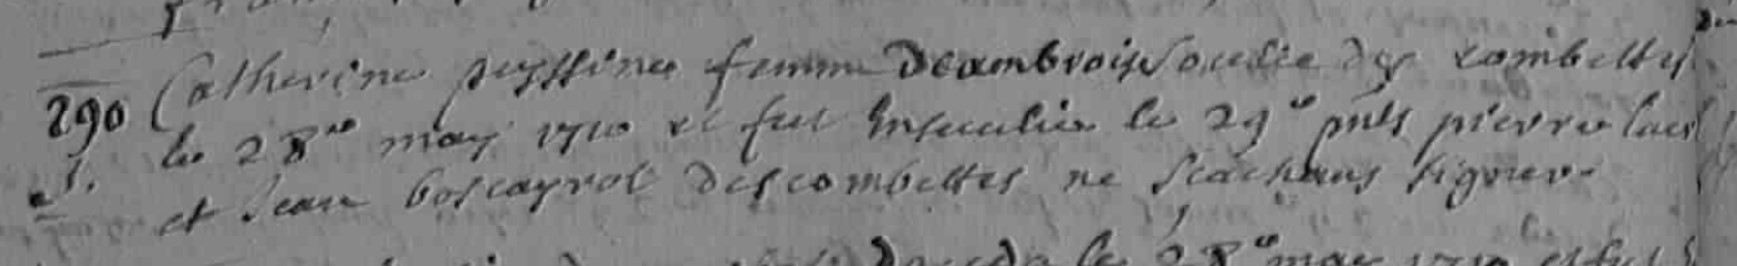 Catherine peyssines femme deambrois Soulie des combettes
290 le 28e may 1710 et fut Ensevelie le 29e pnts pierre
S. et Jean boscayrol descombettes ne scachans signer.
le 28e may 1710 et fut